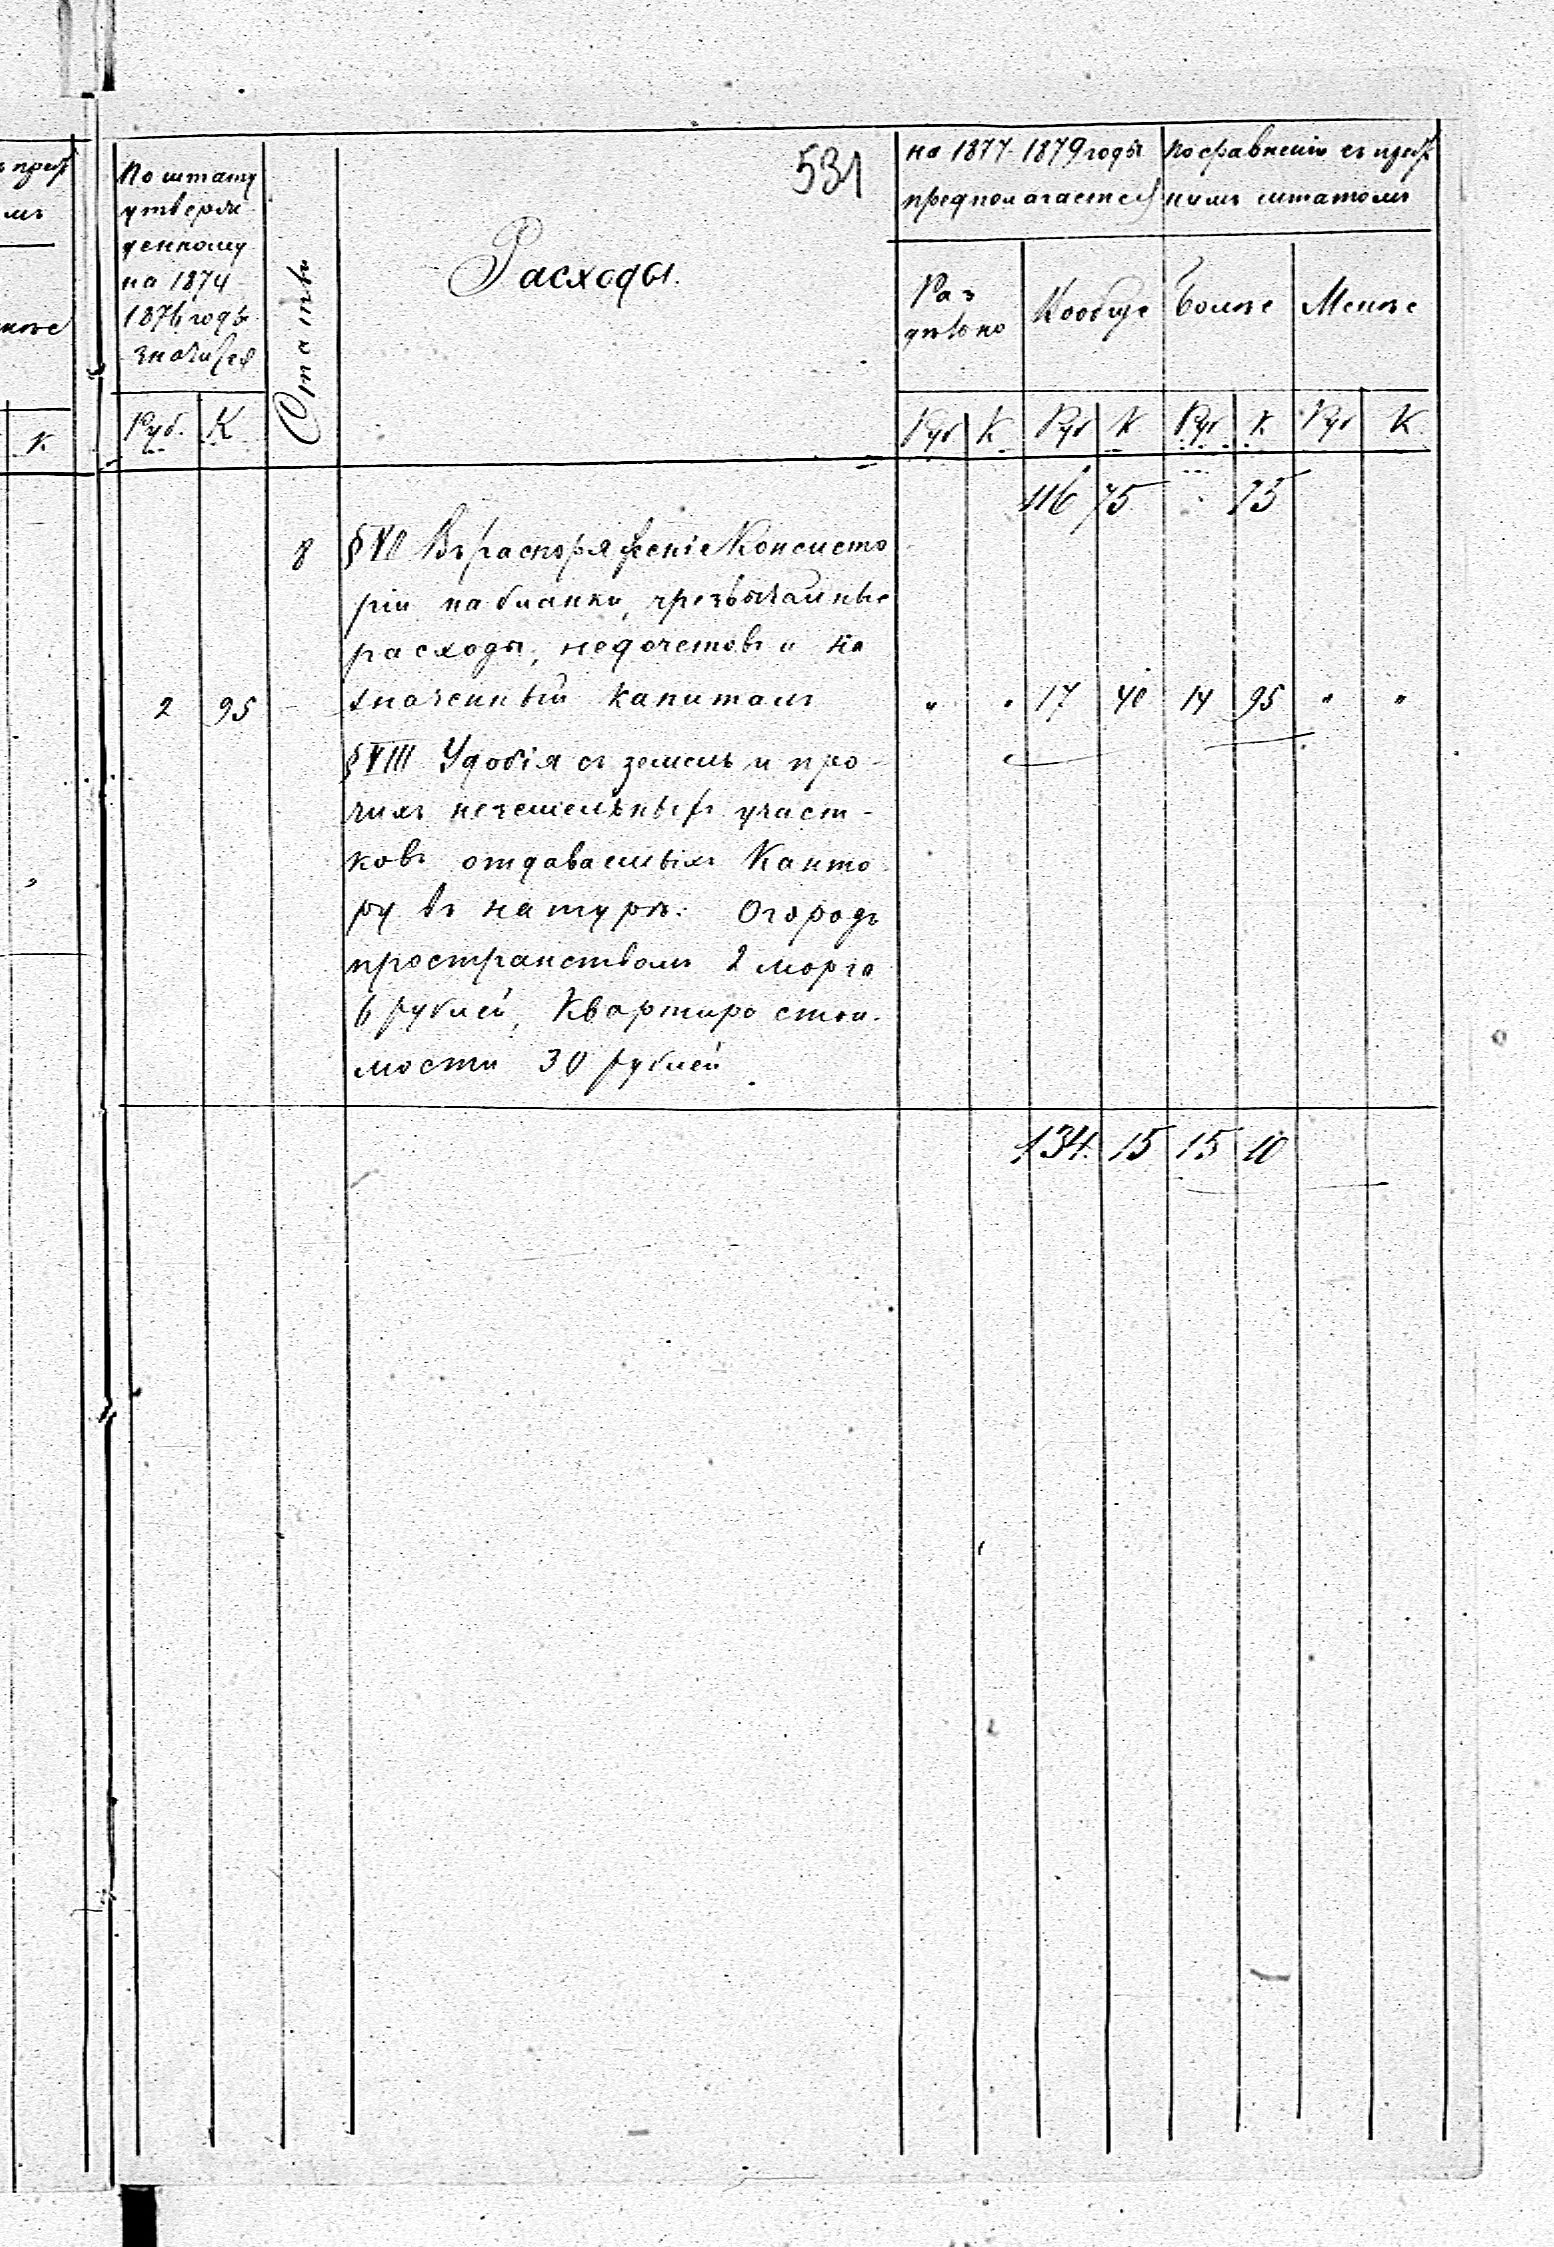 531
По штату
утверж
денному
на 1874
1876 годъ
значится
Руб. К
Статьи
Расходы.
на 1877-1879 годы
предполагается
Раз
дѣльно
Вообще
Руб К Руб К
По сравненію съ преж
нимъ штатомъ
Болѣе Менѣе
Руб К Руб К
К
116 75 . 75
8 § VII Въ распоряженіе Консисто
ріи на бланки, чрезвычайные
расходы, недочетовъ и на
2 95 значенный капиталъ „ „ 17 40 14 95 „ „
§ VIII Удобія съ земель и про-
чихъ неземельныхъ участ-
ковъ отдаваемыхъ Канто
ру въ натурѣ: Огородъ
пространствомъ 2 морга
6 рублей, Квартира стои-
мости 30 рублей
134 15 15 10